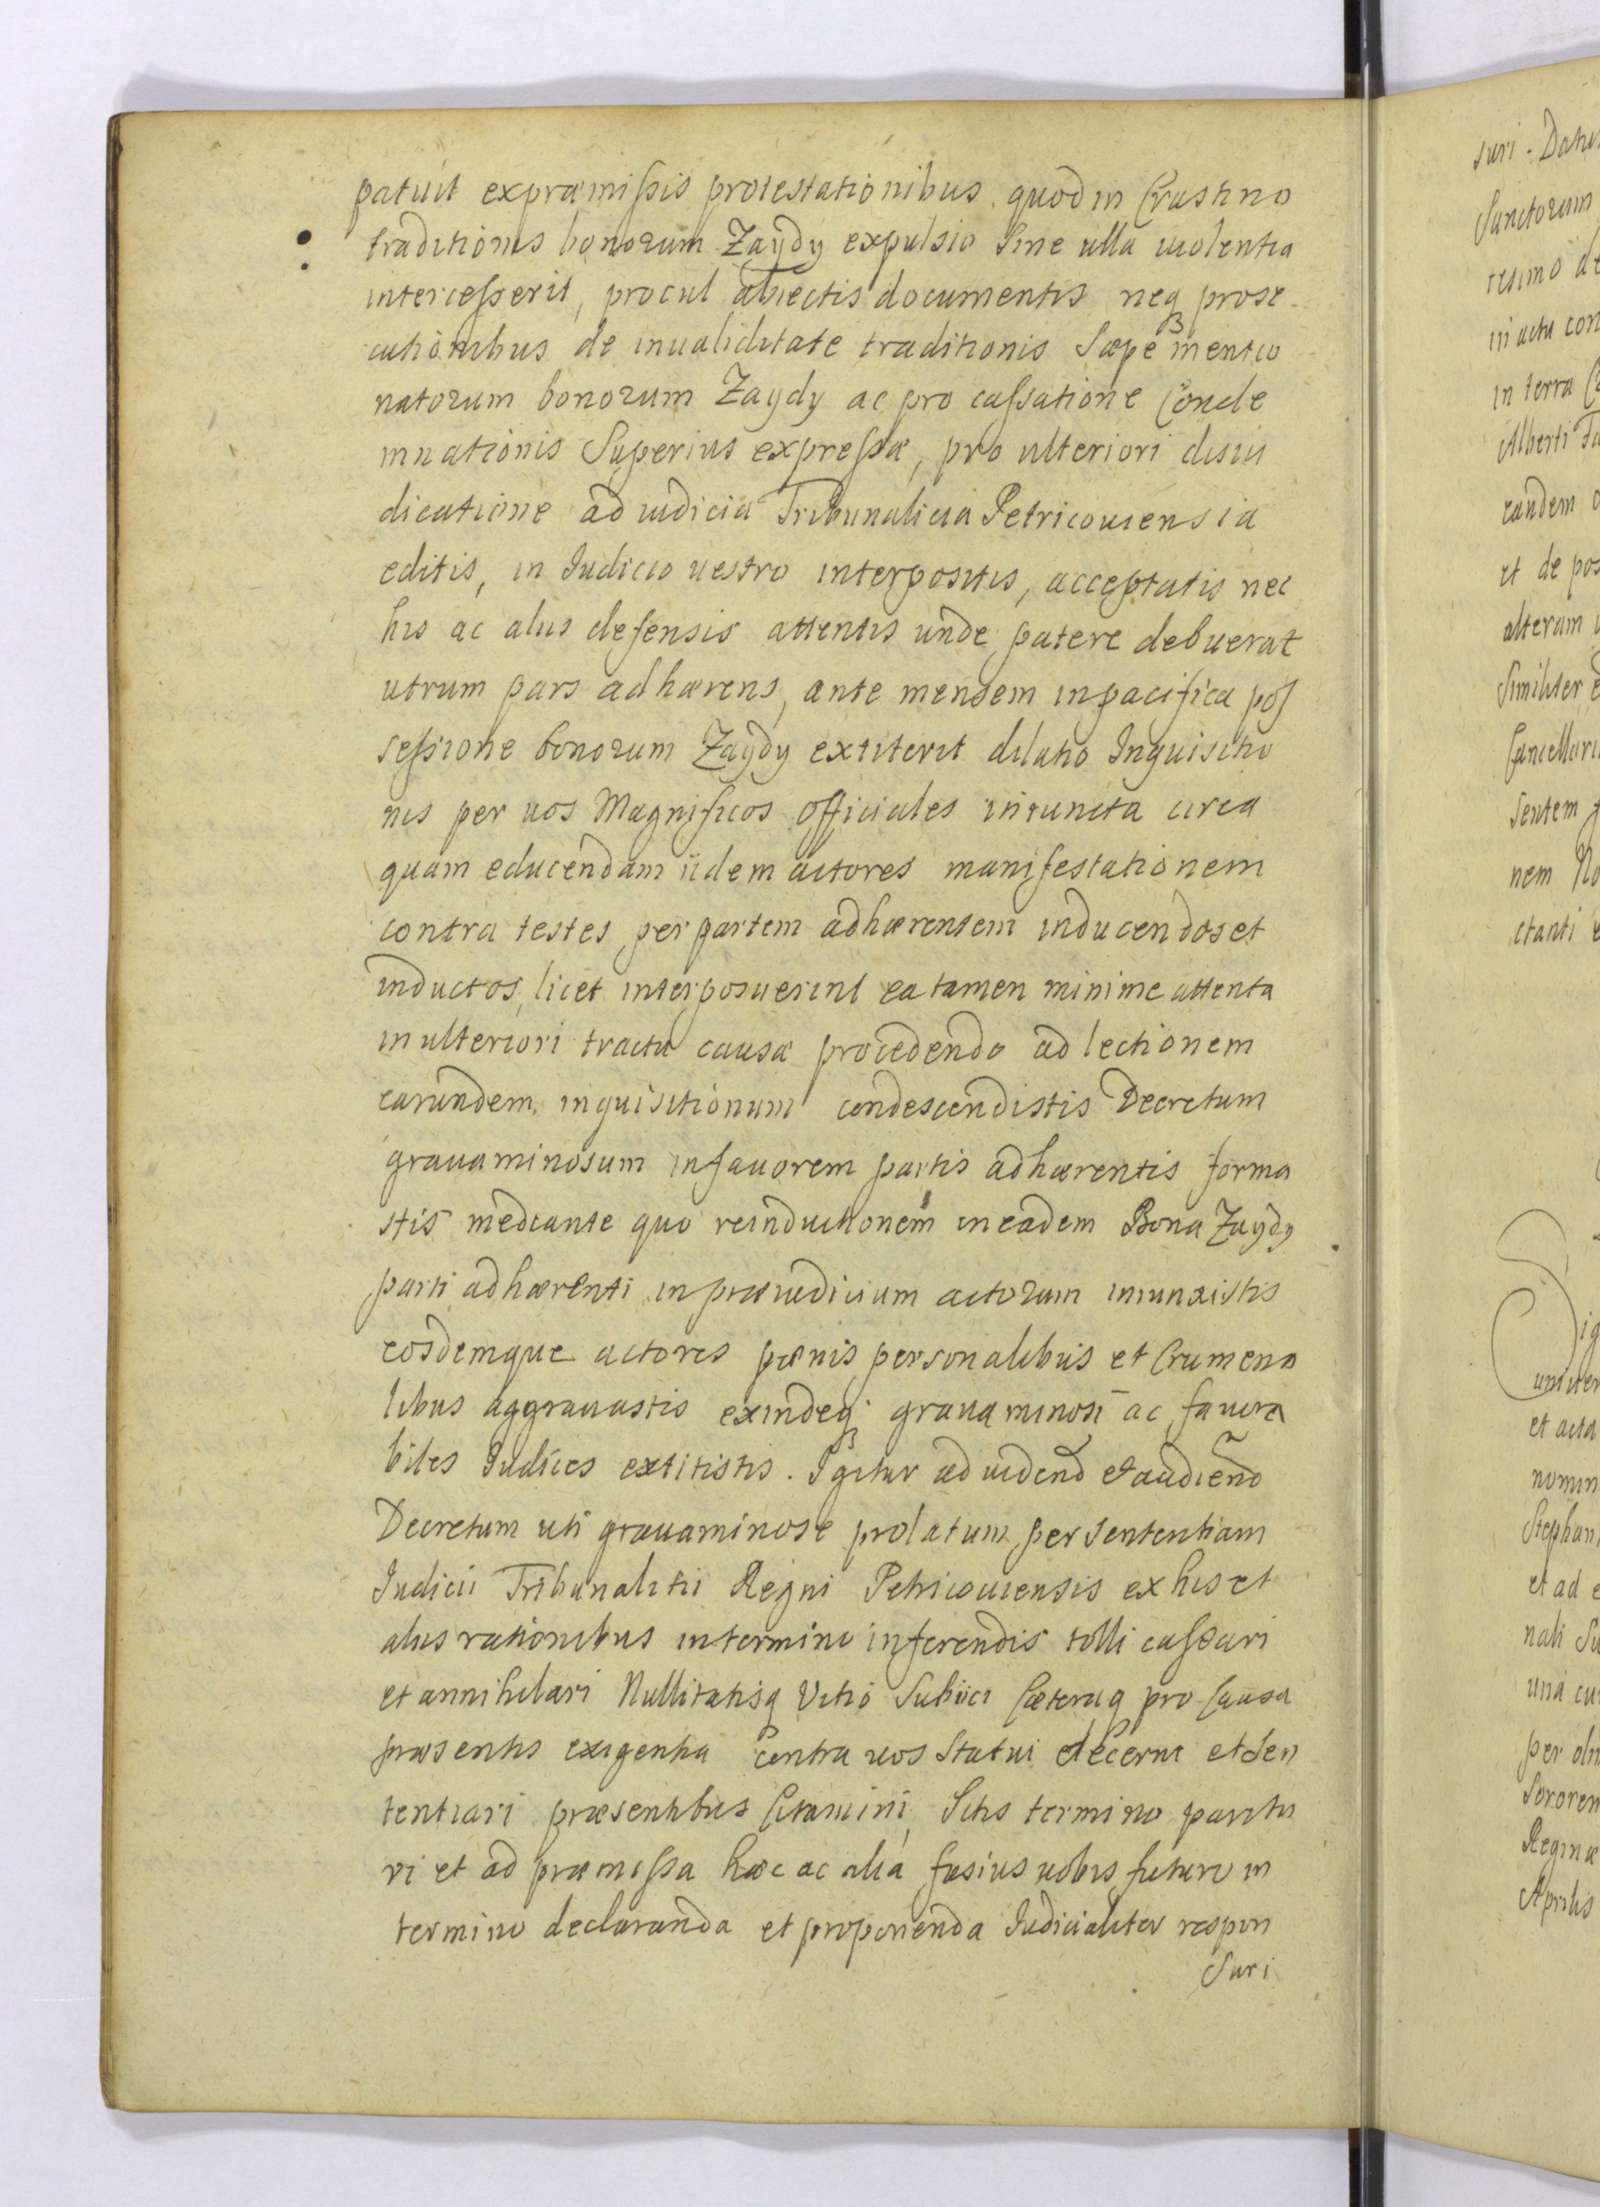 patuit expræmissis protestationibus quod in Crastino
traditionis bonorum Zaydy expulsio Sine ulla uiolentia
intercesserit, procul abiectis documentis neq prose
cutionibus de inualiditate traditionis Sæpe mentio
natorum bonorum Zaydy ac pro cassatione Conde
mnationis Superius expressæ, pro ulteriori disiu
dicatione ad iudicia Tribunalicia Petricouiensia
editis, in Iudicio uestro interpositis, acceptatis nec
his ac alijs defensis attentis unde patere debuerat
utrum pars adhærens, ante mensem inpacifica pos
sessione bonorum Zaydy extiterit dilatio Inquisitio
nis per uos Magnificos Officiales iniuncta circa
quam educendam iidem actores manifestationem
contra testes perpartem adhærentem inducendos et
inductos, licet interposuerint ea tamen minime attenta
in ulteriori tractu causæ procedendo ad lectionem
earundem inquisitionum condescendistis Decretum
grauaminosum infauorem partis adhærentis forma
stis mediante quo reinductionem in eadem Bona Zaydy
parti adhærenti in præiudicium actorum iniunxistis
eosdemque actores pænis personalibus et Crumena
libus aggrauastis exindeq grauaminosi ac fauora
biles Iudices extitistis. Igitur ad uidend et audiend
Decretum uti grauaminose prolatum per sententiam
Iudicii Tribunalitii Regni Petricouiensis ex his et
alijs rationibus intermino inferendis tolli cassari
et annihilari Nullitatisq Vitio Subiici Cæteraq pro Causa
præsentis exigentia Contra uos Statui decerni et Sen
tentiari præsentibus Citamini, Sitis termino paritu
ri et ad præmissa hæc ac alia fusius uobis futuro in
termino declaranda et proponenda Iudicialiter respon
Suri
suri. Datu
Sanctorum
in actu con
in terra
Alberti
eandem
et de pos
alteram
Similiter
Cancellari
sentem
nem No
ctanti
et acta
nomin
Stephan
et ad e
nali Su
una cu
per oli
Sororem
Reginæ
Aprilis